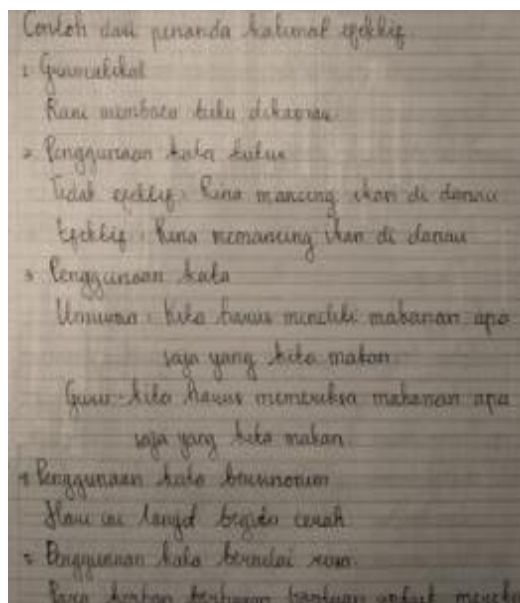 Contoh dari penanda kalimat efektif
1. Gramatikal
Rani membaca buku dikamar.
2. Penggunaan kata
Tidak efektif : Rina mancing ikan di danau
Efektif : Rina memancing ikan di danau
3. Penggunaan kata
Umuran : kita harus meneliti makanan apa
saja yang kita makan
Guru : kita harus memeriksa makanan apa
saja yang kita makan.
4. Penggunaan kata bersinonim
Hari ini langit begitu cerah
5. Penggunaan kata bernilai rasa.
Para korban berharap bantuan untuk mereka